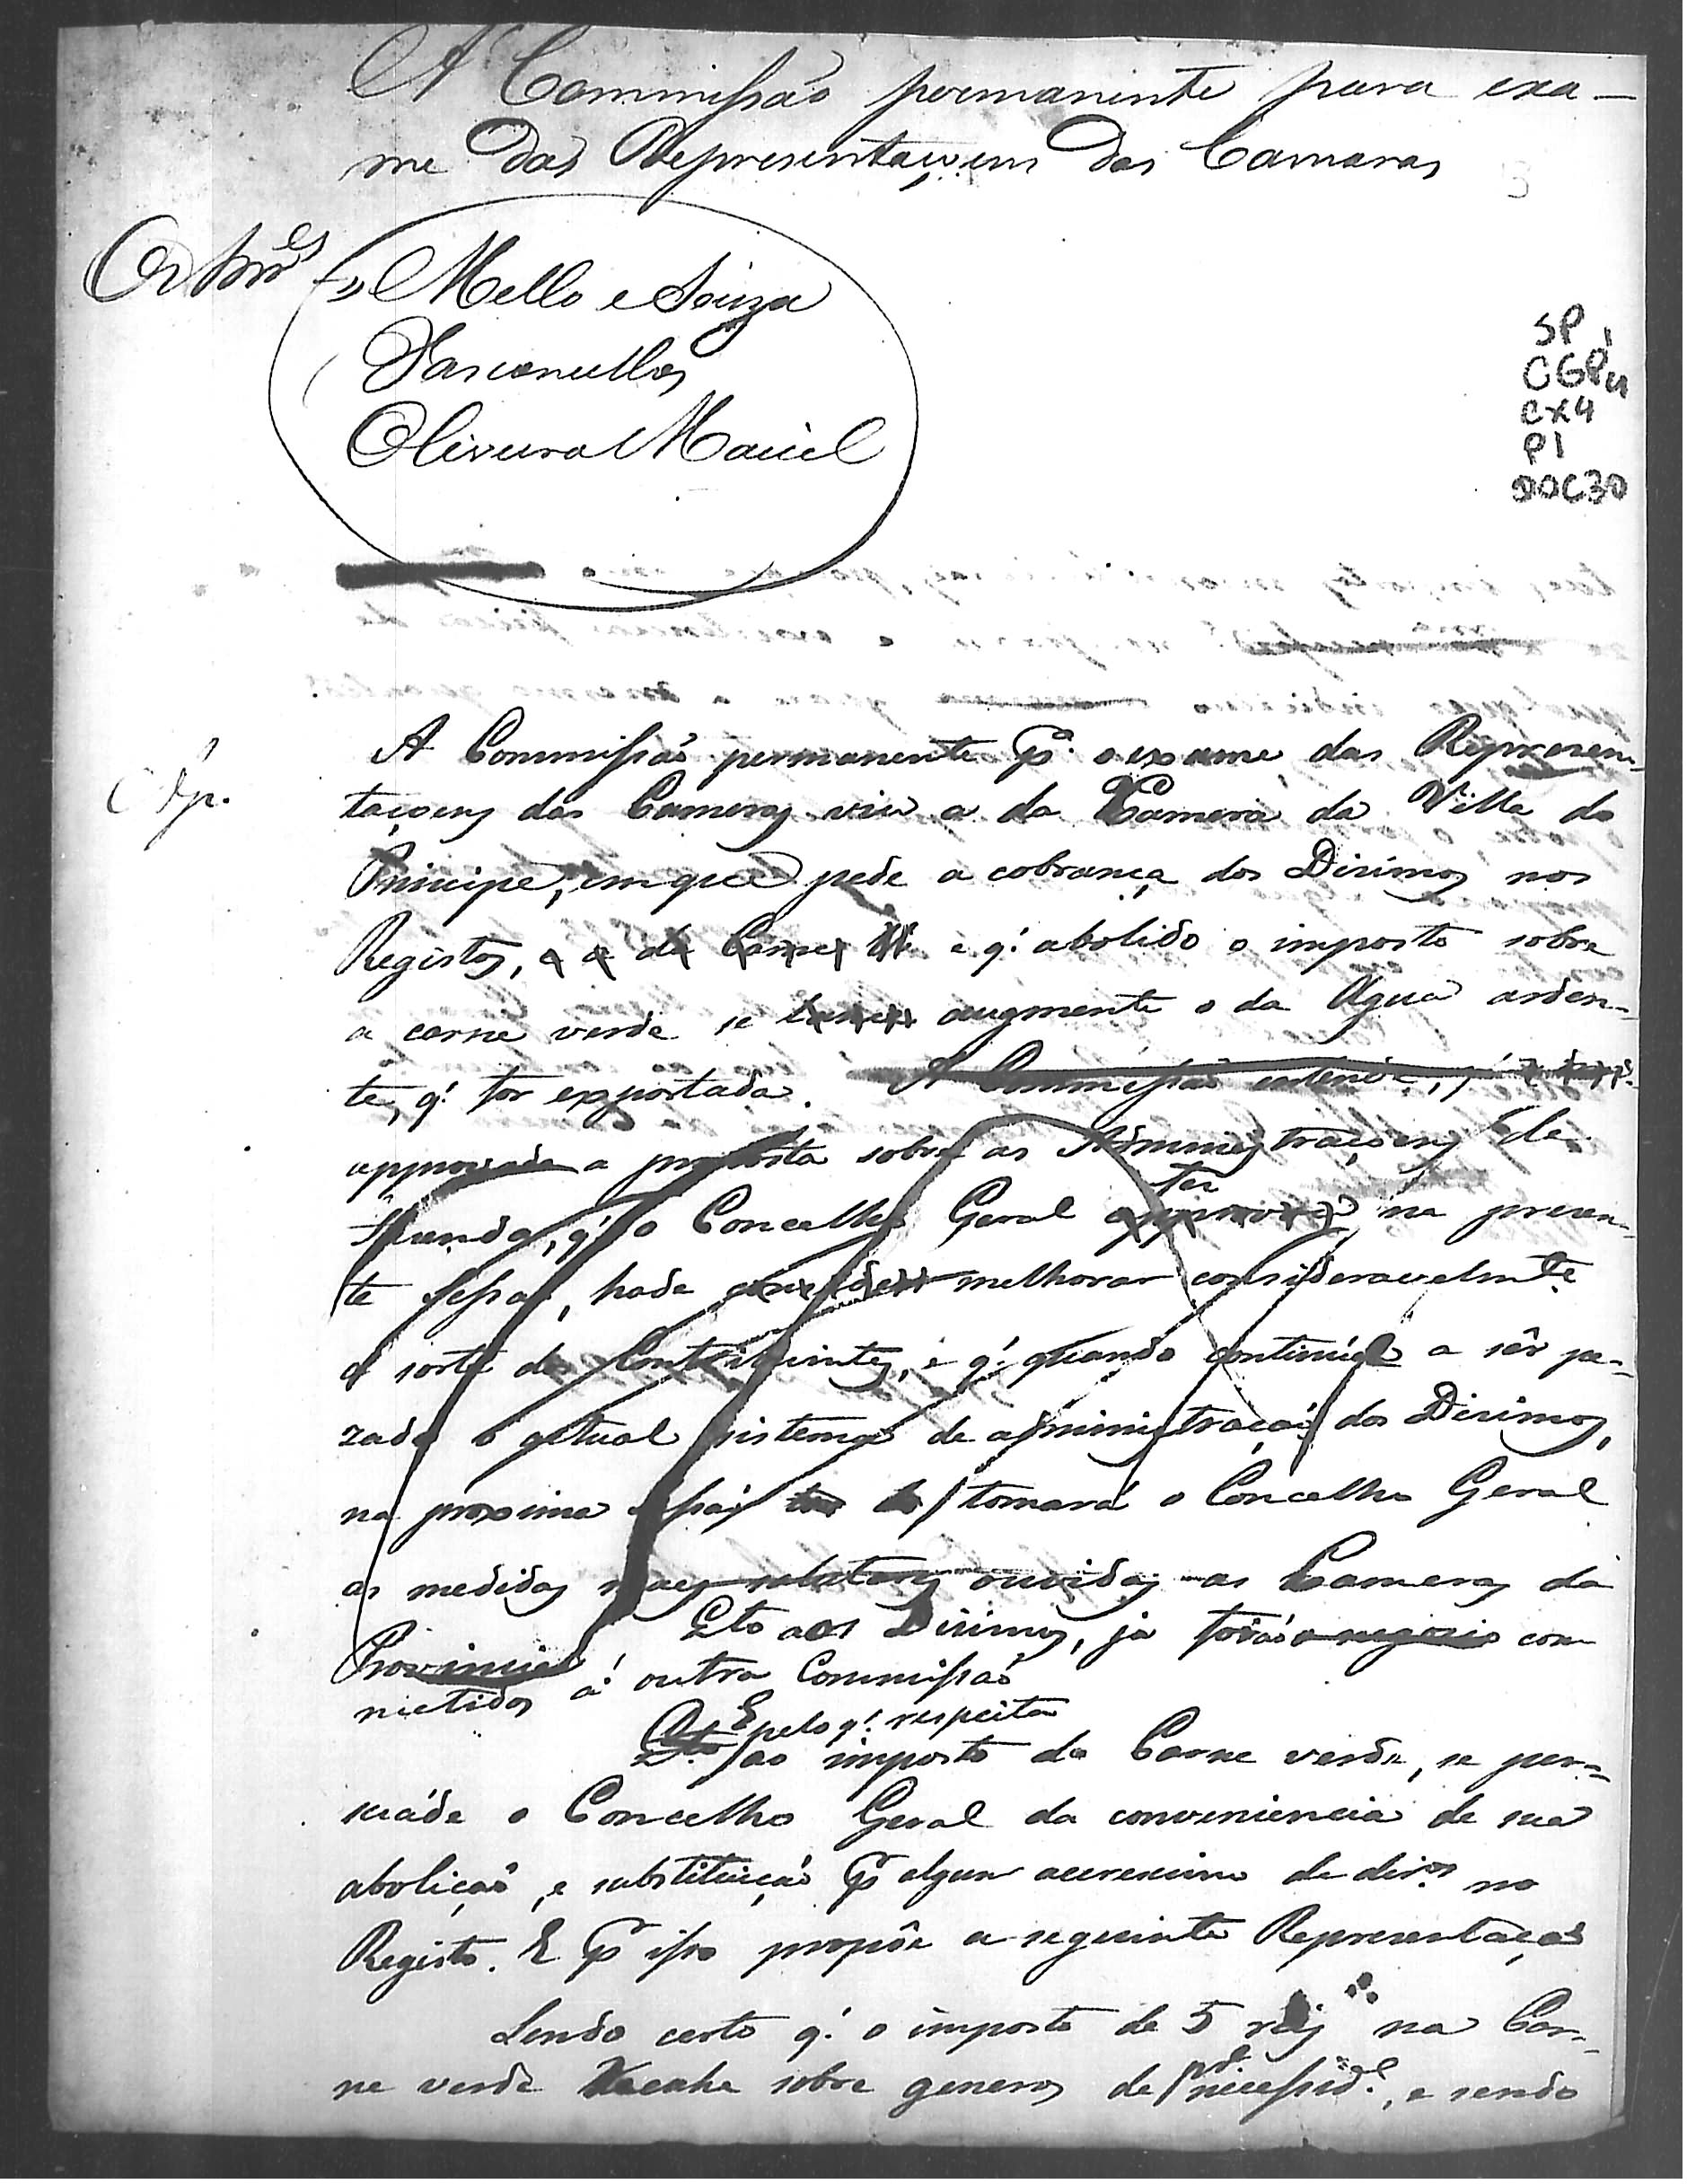 A Commissão permanente para exa-
me das Representaçoens das Camaras
Os Snres
Mello e Souza
Vasconcellos
Oliveira Maciel
SP
CGP
CX4
P1
DOC30
A Commissão permanente pa. o exame das Represen-
taçoens das Cameras viu a da Camera da Villa do
Principe, em que pede a cobrança dos Disimos nos
Registos, e a da Carne e q' abolido o imposto sobre
a carne verde se augmente o da Agua arden-
te, q' for exportada. A Commissão entende, q'
approvada a proposta sobre as Administraçoens de
Fazenda, q' o Concelho Geral ter na presen-
te sessão, hade melhorar consideravelmte
a sorte dos Contribuintes, e q' quando continúe a sêr pe-
zado o actual sistema de administração dos Disimos,
na proxima sessão tomará o Concelho Geral
as medidas mais salutares ouvidas as Cameras da
Provincia
Qto aos Disimos, ja forão o negocio com
metidos á outra Commissão
E pelo q' respeita
ao imposto da Carne verde, se per-
suáde o Concelho Geral da conveniencia de sua
abolição, e substituição pr algum accrescimo de dir.os no
Registo. E pr isso propôe a seguinte Representação
Sendo certo q' o imposto de 5 reis na Car-
ne verde recahe sobre generos de pra. necessid.e, e sendo